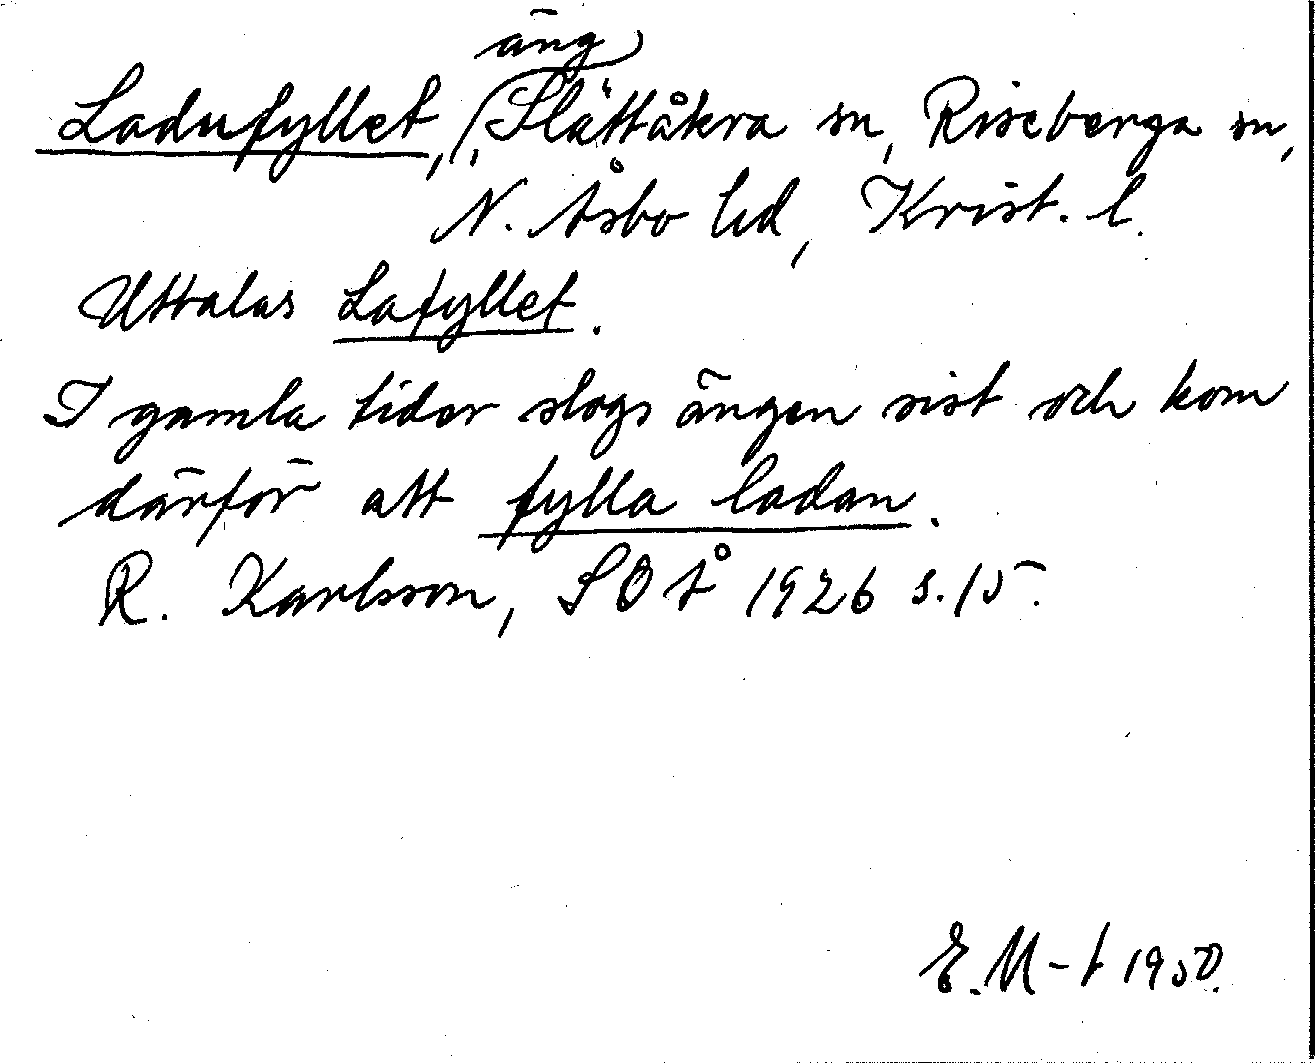 äng
Ladufyllet, Slättåkra sn, Riseberga sn,
N. Åsbo hd, Krist. l.
Uttalas Lafyllet.
I gamla tider slogs ängen sist och kom
därför att fylla ladan.
R. Karlsson, SOÅ 1926 s. 15.
E. M-t 1950.